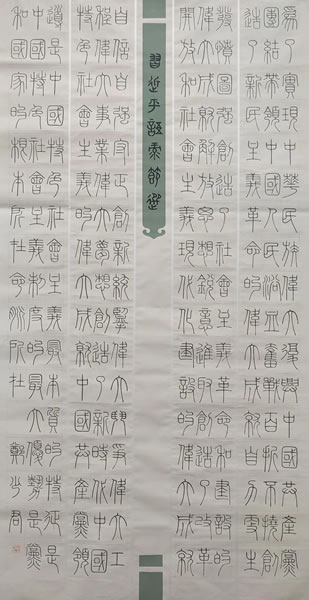 習近平語录節選
爲了實現中華民族偉大復興中國共產黨
團結帶領中國人民浴血奮戰百折不撓創
造了新民主主義革命的偉大成就自力更生
發憤圖強創造了社會主義革命和建設的
偉大成就解放思想銳意進取創造了改革
開放和社會主義現代化建設的偉大成就
自信自強守正創新統攬偉大鬥爭偉大工
程偉大事業偉大夢想創造了新時代中國
特色社會主義的偉大成就中國共產黨領
導是中國特色社會主義最本質的特徵是
中國特色社會主義制度的最大優勢是黨
和國家的根本所在命脈所在 鄭少君